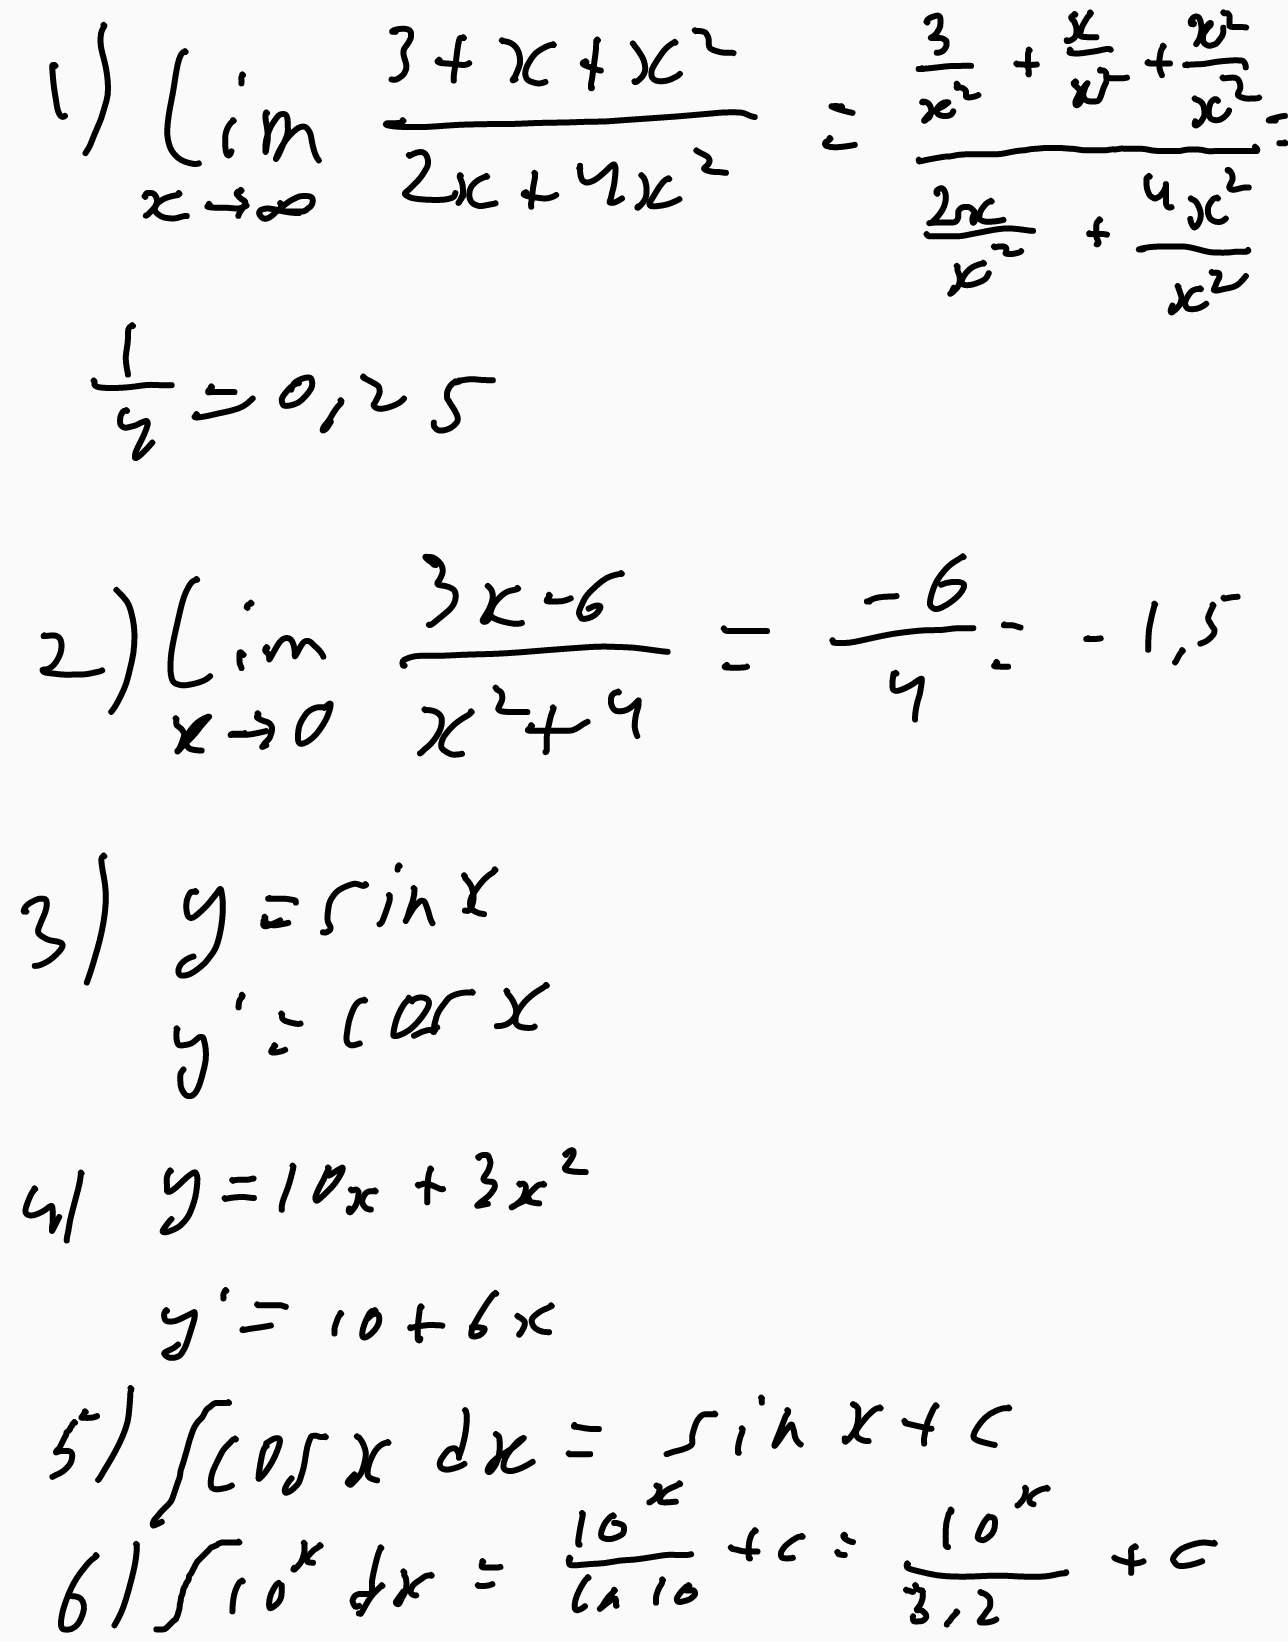 1) lim x→∞ (3 + x + x²)/(2x + 4x²) = (3/x² + x/x² + x²/x²)/(2x/x² + 4x²/x²) =
1/4 = 0,25
2) lim x→0 (3x - 6)/(x² + 4) = -6/4 = -1,5
3) y = sin x
y' = cos x
4) y = 10x + 3x²
y' = 10 + 6x
5) ∫ cos x dx = sin x + c
6) ∫ 10ˣ dx = 10ˣ/ln 10 + c = 10ˣ/3,2 + c